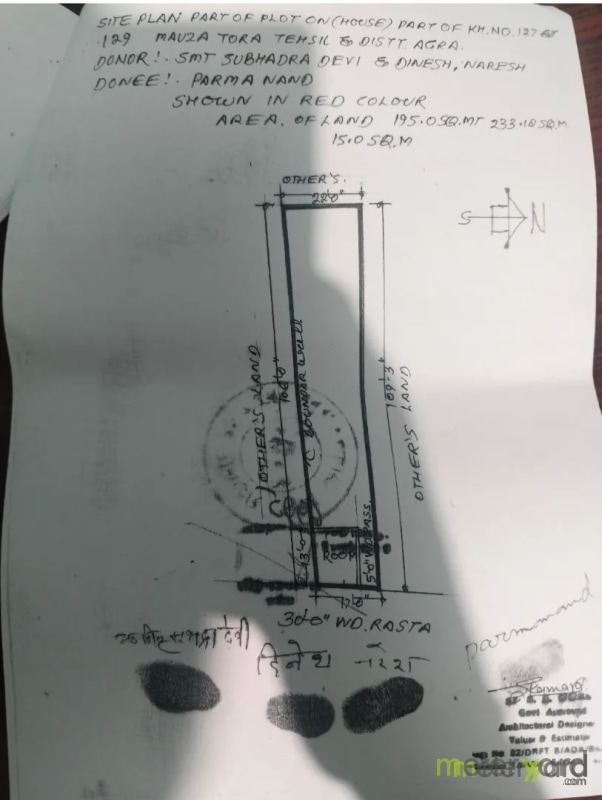 SITE PLAN PART OF PLOT ON (HOUSE) PART OF KH.NO. 127 &
129 MAUZA TORA TEHSIL & DISTT. AGRA.
DONOR:- SMT SUBHADRA DEVI & DINESH, NARESH
DONEE:- PARMA NAND
SHOWN IN RED COLOUR
AREA. OF LAND 195.0 SQ.MT 233.18 SQ.M.
15.0 SQ.M
OTHER'S.
22'0"
S N
OTHER'S LAND
BOUNDAR WALL
109'-3"
OTHER'S LAND
13'-0"
5'-0" WD. PASS.
12'-0"
30'-0" WD. RASTA
Parmanand
दिनेश नरेश
Sharma
Govt Approved
Architectural Designer
Valuer & Estimator
No 82/DRFT B/ADA/
meteryard
.com